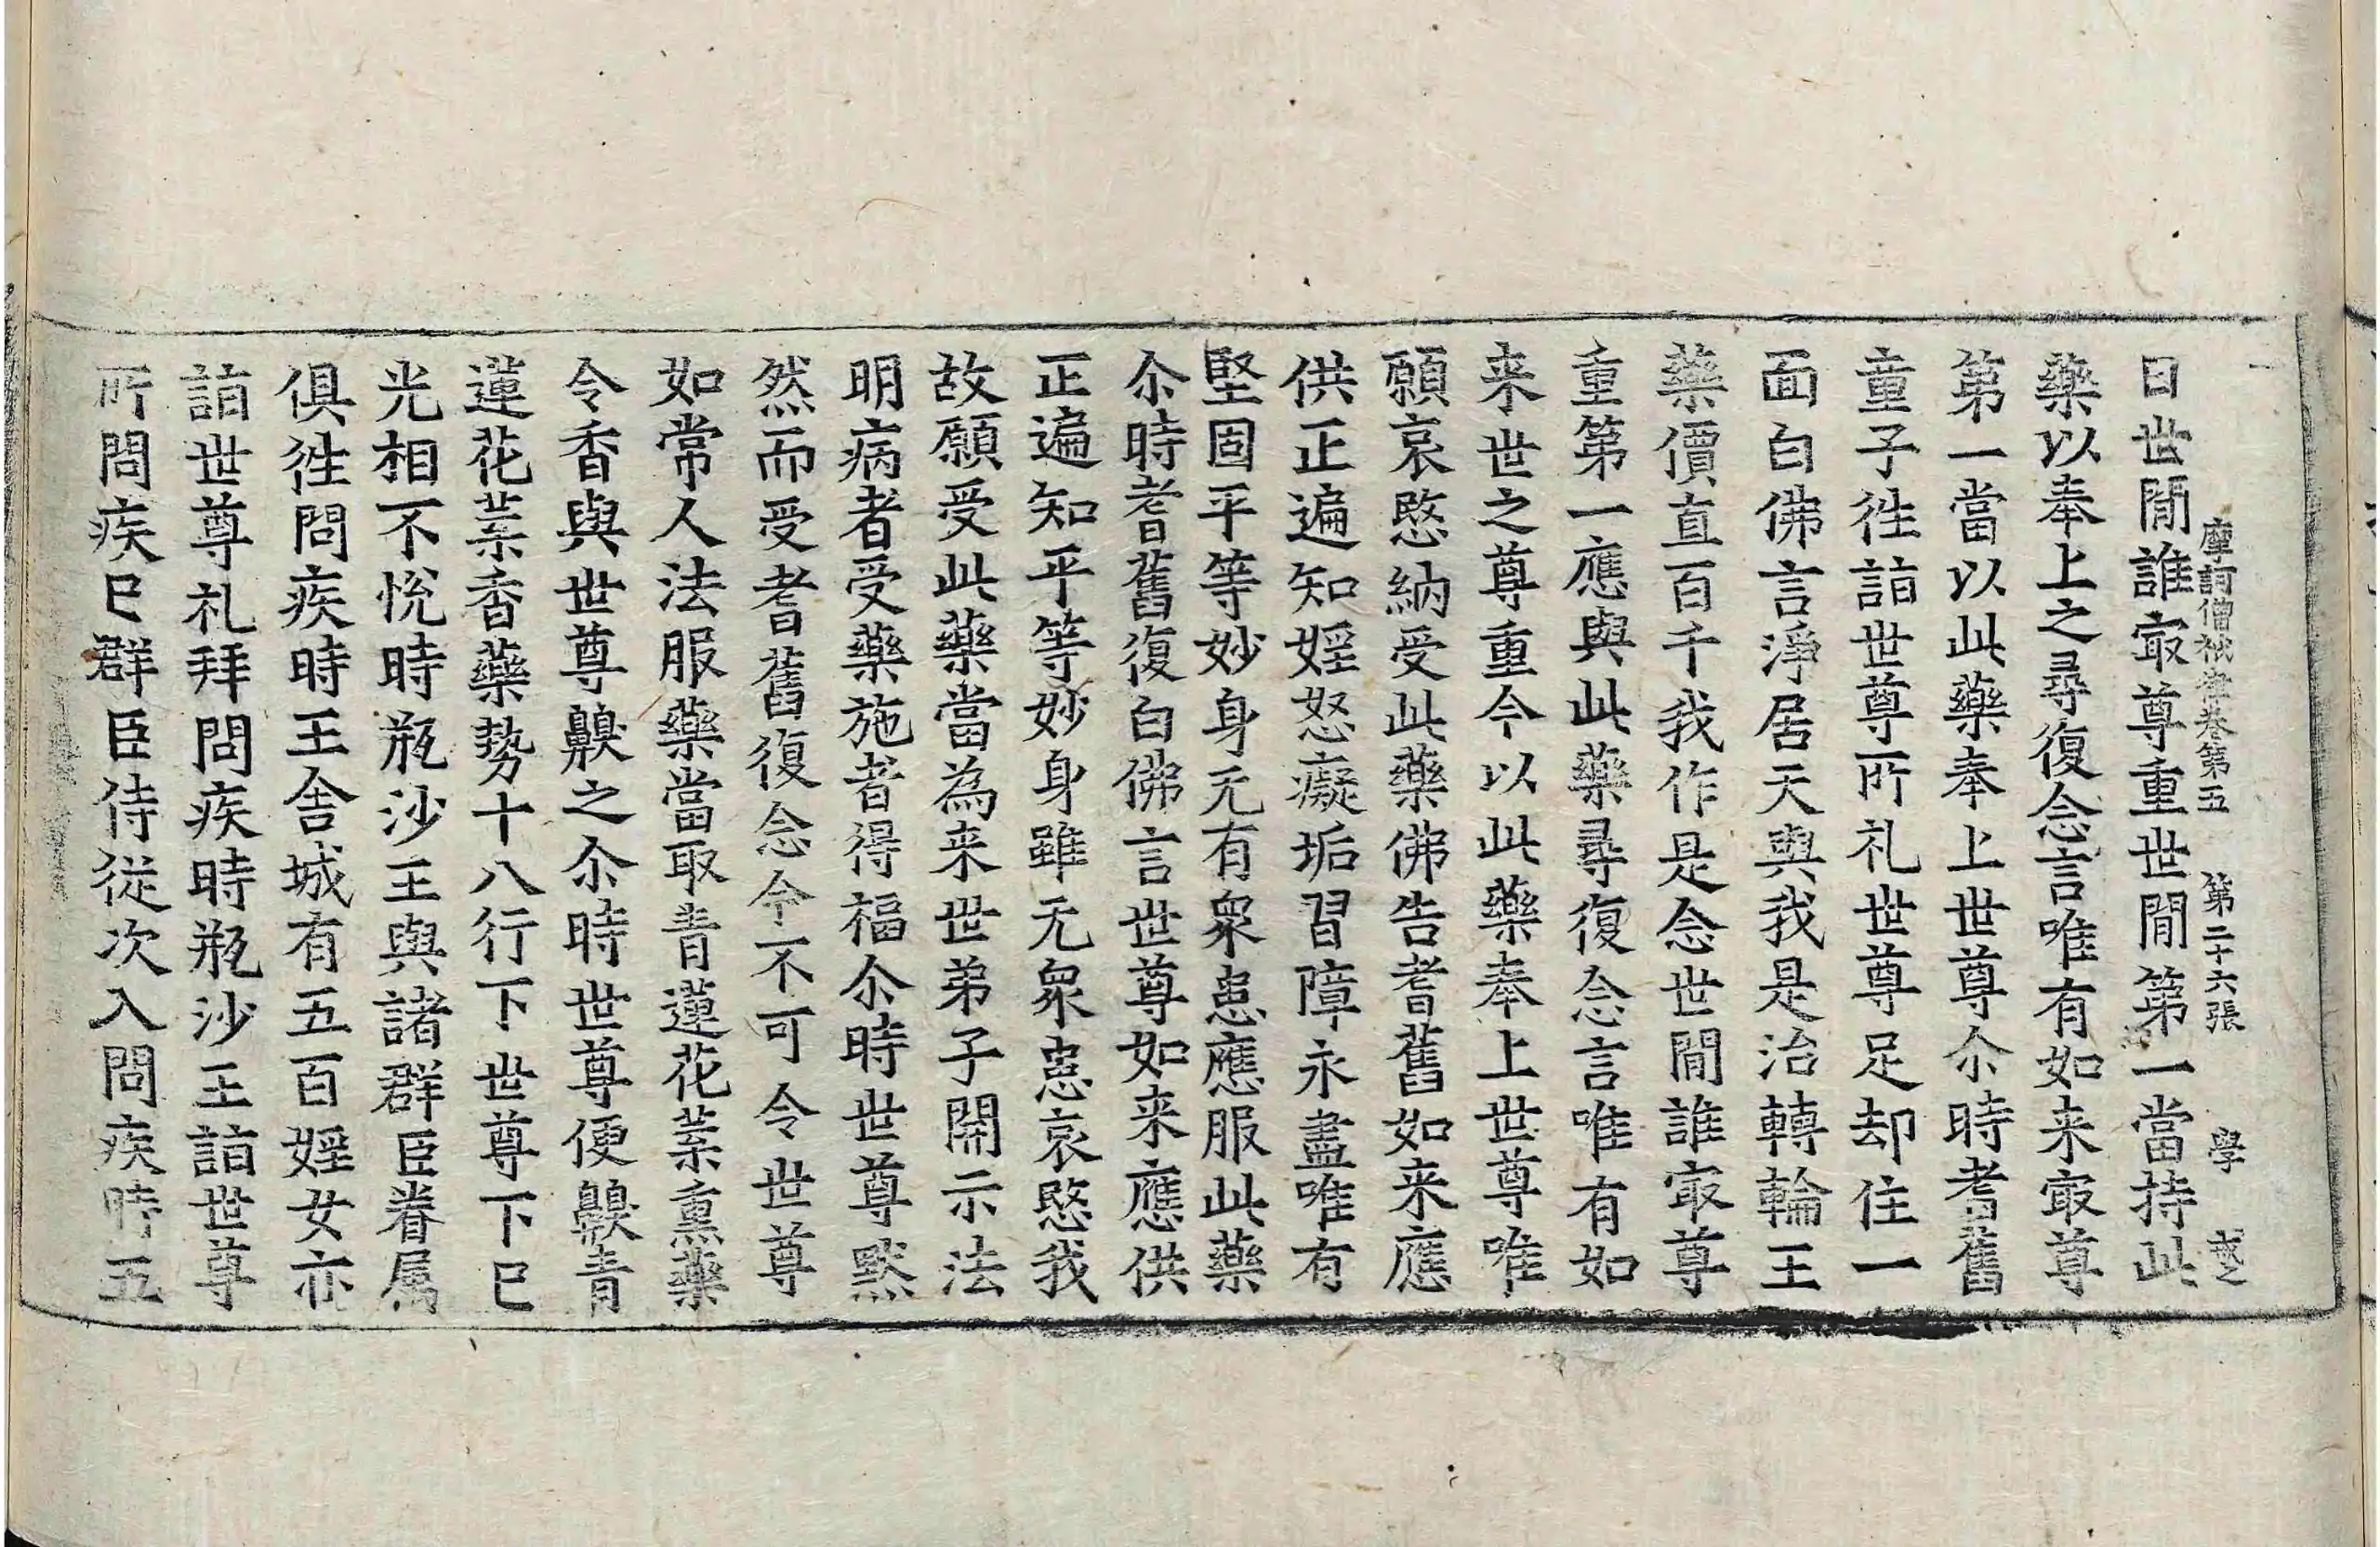 摩訶僧祇律卷第五　第二十六張　學
曰世間誰㝡尊重世間第一當持此
藥以奉上之尋復念言唯有如来㝡尊
第一當以此藥奉上世尊尒時耆舊
童子徃詣世尊所礼世尊足却住一
面白佛言淨居天與我是治轉輪王
藥價直百千我作是念世間誰㝡尊
重第一應與此藥尋復念言唯有如
来世之尊重今以此藥奉上世尊唯
願哀愍納受此藥佛告耆舊如来應
供正遍知婬怒癡垢習障永盡唯有
堅固平等妙身无有衆患應服此藥
尒時耆舊復白佛言世尊如来應供
正遍知平等妙身雖无衆患哀愍我
故願受此藥當為来世弟子開示法
明病者受藥施者得福尒時世尊默
然而受耆舊復念今不可令世尊
如常人法服藥當取青蓮花葉熏藥
令香與世尊齅之尒時世尊便齅青
蓮花葉香藥勢十八行下世尊下已
光相不悅時瓶沙王與諸群臣眷属
俱徃問疾時王舍城有五百婬女亦
詣世尊礼拜問疾時瓶沙王詣世尊
所問疾已群臣侍從次入問疾時五